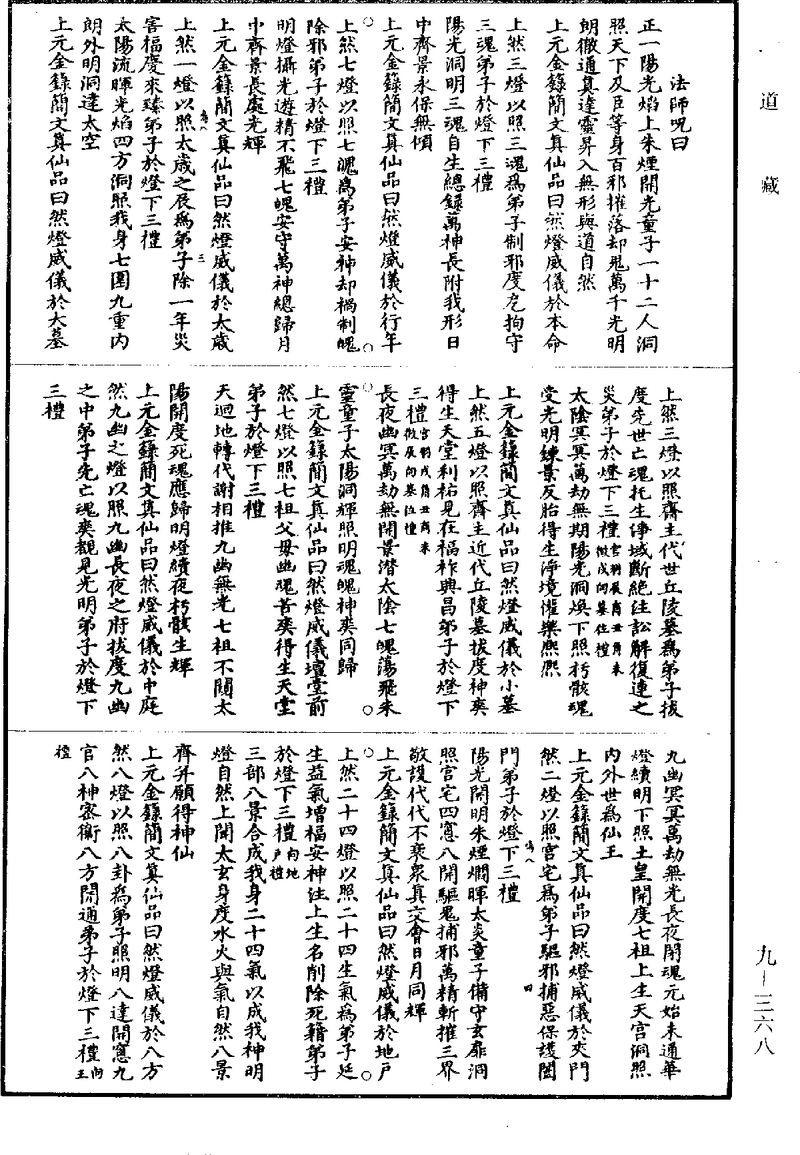 道藏
九—三六八
法師呪曰
正一陽光焰上朱煙開光童子一十二人洞
照天下及臣等身百邪摧落却鬼萬千光明
朗徹通真達靈昇入無形與道自然
上元金籙簡文真仙品曰然燈威儀於本命
上然三燈以照三魂為弟子制邪度厄拘守
三魂弟子於燈下三禮
陽光洞明三魂自生總錄萬神長附我形日
中齊景永保無傾
上元金籙簡文真仙品曰然燈威儀於行年
上然七燈以照七魄為弟子安神却禍制魄
除邪弟子於燈下三禮
明燈攝光遊精不飛七魄安守萬神總歸月
中齊景長處光輝
上元金籙簡文真仙品曰然燈威儀於太歲
上然一燈以照太歲之辰為弟子除一年災
害福慶來臻弟子於燈下三禮
太陽流暉光焰四方洞照我身七圍九重內
朗外明洞達太空
上元金籙簡文真仙品曰然燈威儀於大墓
上然三燈以照齋主代世丘陵墓為弟子拔
度先世亡魂托生淨域斷絕注訟解復連之
災弟子於燈下三禮
太陰冥冥萬劫無期陽光洞煥下照朽骸魂
受光明鍊景反胎得生淨境懽樂熙熙
上元金籙簡文真仙品曰然燈威儀於小墓
上然五燈以照齋主近代丘陵墓拔度神爽
得生天堂利祐見在福祚興昌弟子於燈下
三禮
長夜幽冥萬劫無開景潛太陰七魄蕩飛朱
靈童子太陽洞輝照明魂魄神爽同歸
上元金籙簡文真仙品曰然燈威儀壇堂前
然七燈以照七祖父母幽魂苦爽得生天堂
弟子於燈下三禮
天迴地轉代謝相推九幽無光七祖不關太
陽開度死魂應歸明燈續夜朽骸生輝
上元金籙簡文真仙品曰然燈威儀於中庭
然九幽之燈以照九幽長夜之府拔度九幽
之中弟子先亡魂爽覩見光明弟子於燈下
三禮
九幽冥冥萬劫無光長夜閉魂元始未通華
燈續明下照土皇開度七祖上生天宮洞照
內外世為仙王
上元金籙簡文真仙品曰然燈威儀於夾門
然二燈以照宮宅為弟子驅邪捕惡保護闔
門弟子於燈下三禮
陽光開明朱煙燜暉太炎童子備守玄扉洞
照宮宅四窓八開驅鬼捕邪萬精斬摧三界
敬護代代不衰眾真交會日月同輝
上元金籙簡文真仙品曰然燈威儀於地戶
上然二十四燈以照二十四生氣為弟子延
生益氣增福安神注上生名削除死籍弟子
於燈下三禮向地戶禮
三部八景合成我身二十四氣以成我神明
燈自然上開太玄身度水火與氣自然八景
齊昇願得神仙
上元金籙簡文真仙品曰然燈威儀於八方
然八燈以照八卦為弟子照明八達開窓九
官八神密衛八方開通弟子於燈下三禮向王
禮